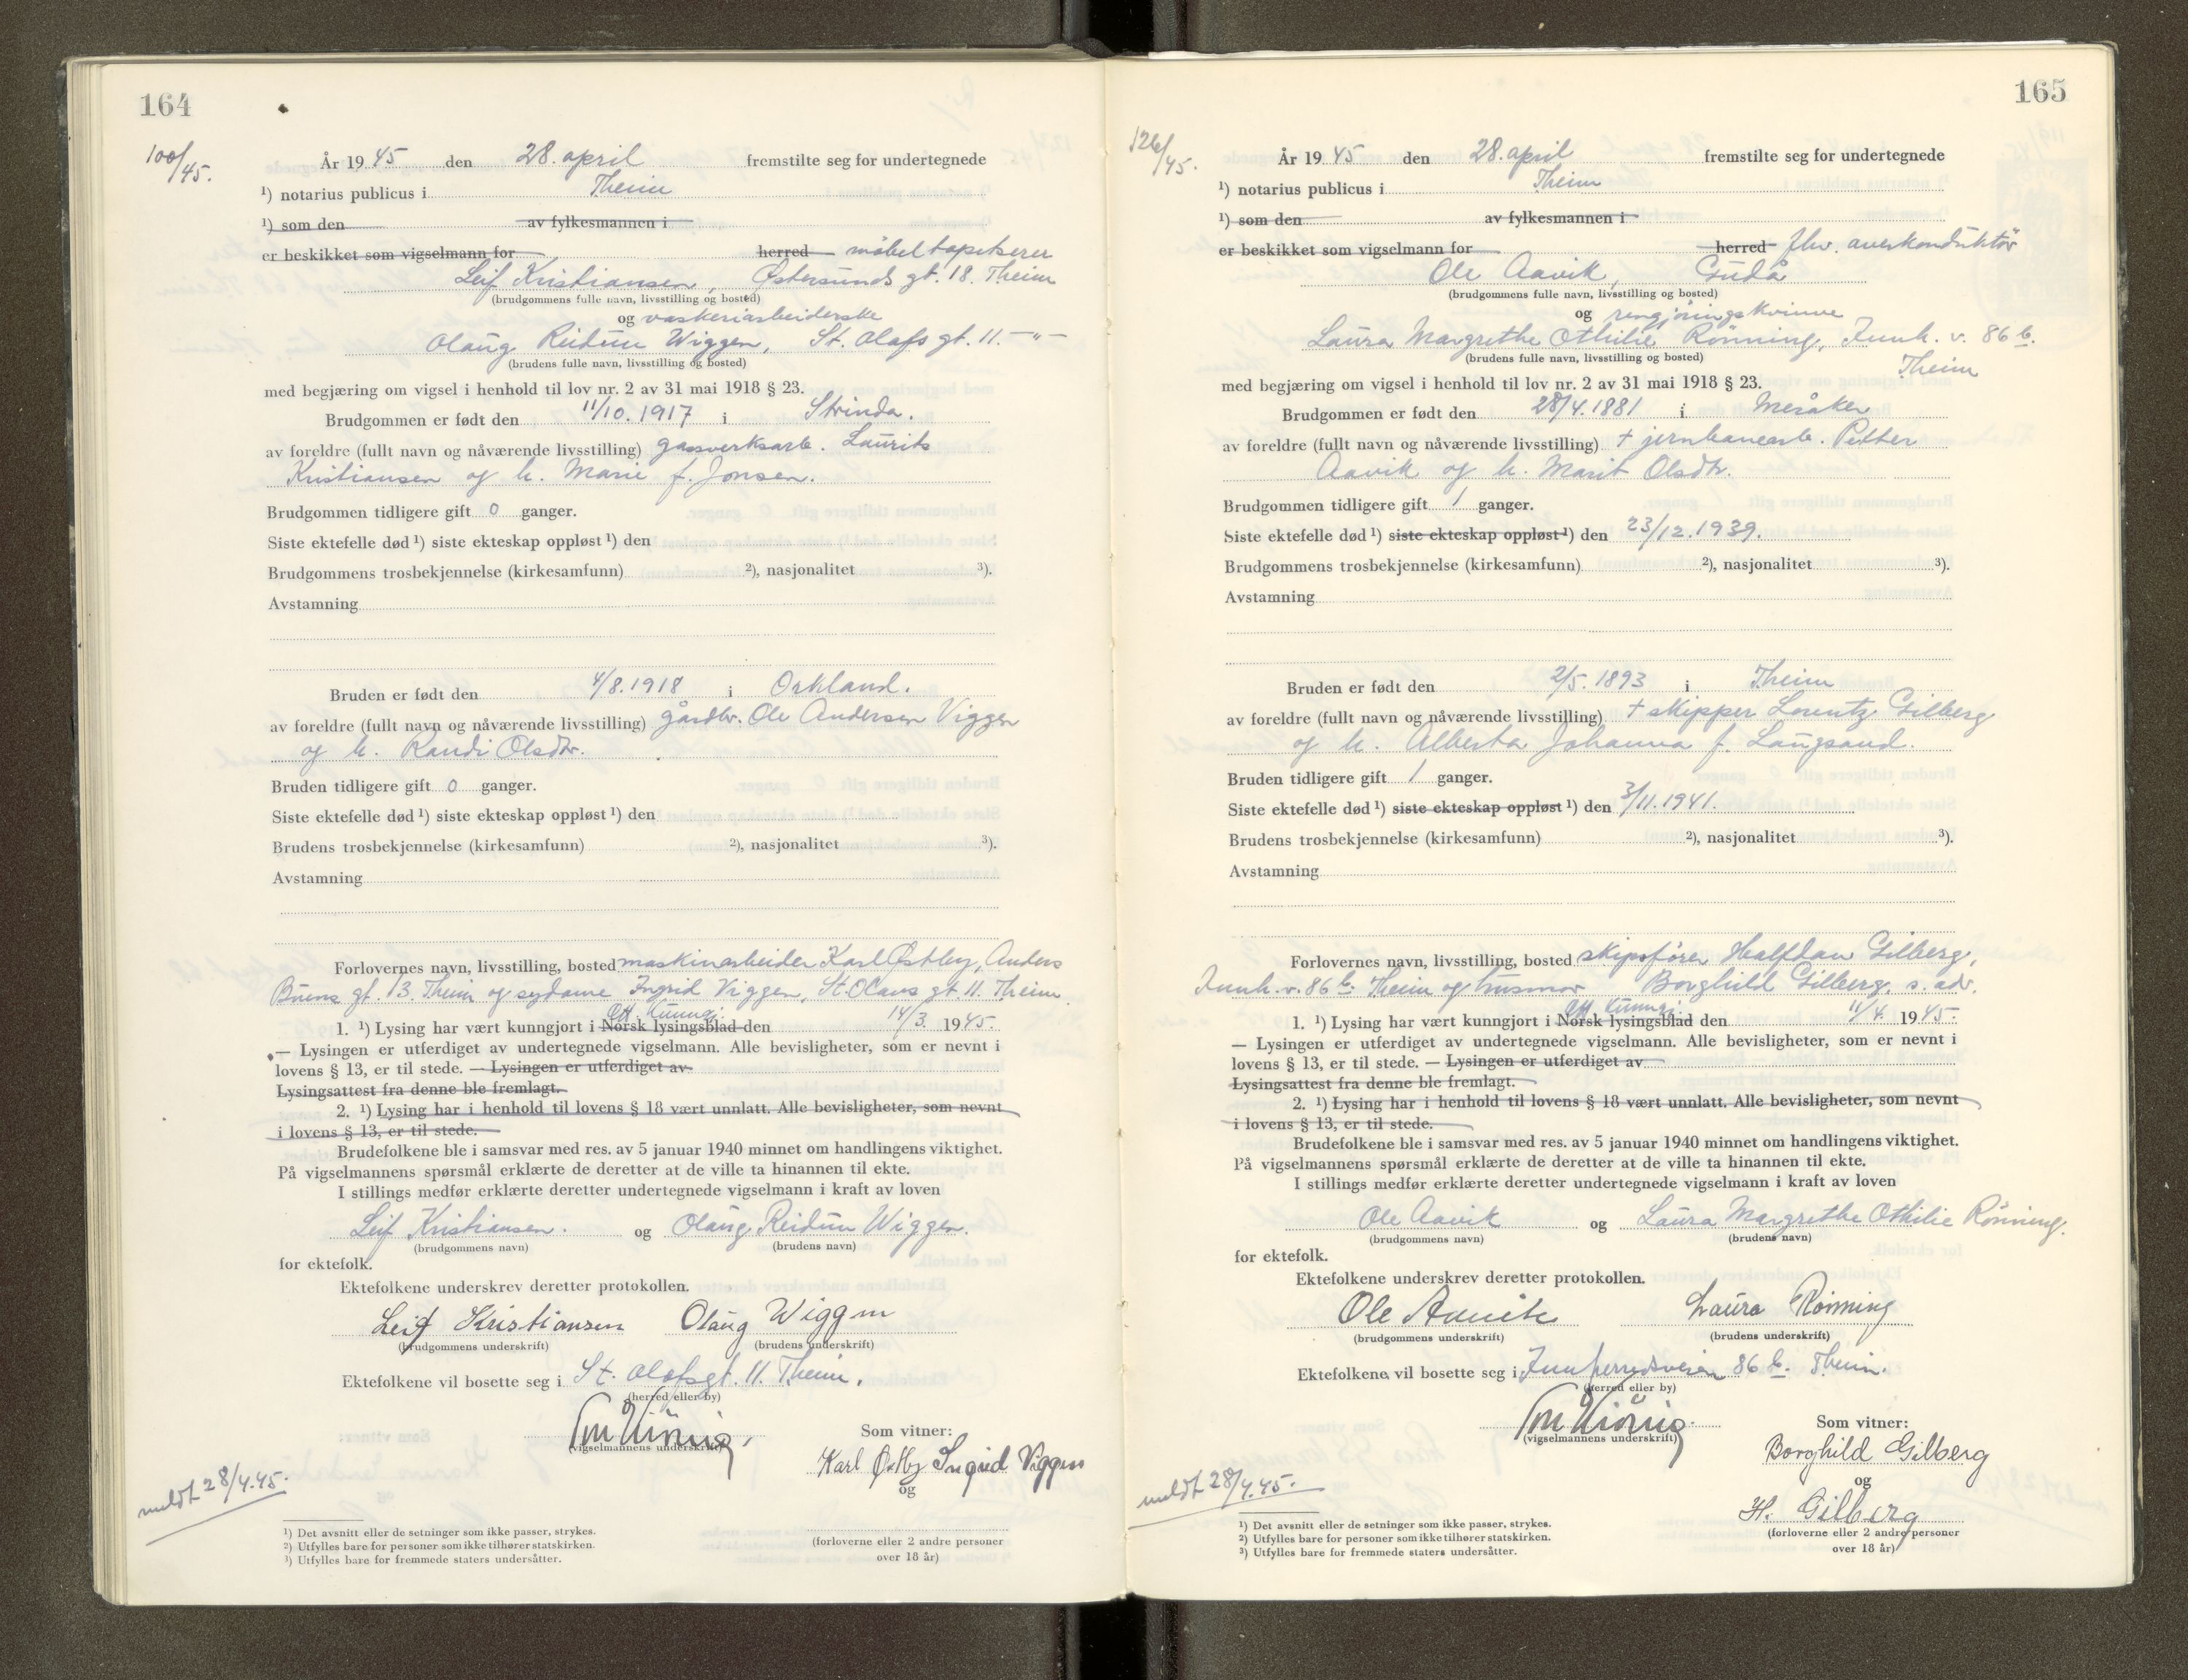 164
100/45.
År 19 45 den 28. april fremstilte seg for undertegnede
¹) notarius publicus i Theim
¹) som den av fylkesmannen i
er beskikket som vigselmann for herred møbeltapetserer
Leif Kristiansen, Østersunds gt. 18. Theim
(brudgommens fulle navn, livsstilling og bosted)
og vaskeriarbeiderske
Olaug Reidun Wiggen, St. Olafs gt. 11. —"—
(brudens fulle navn, livsstilling og bosted)
med begjæring om vigsel i henhold til lov nr. 2 av 31 mai 1918 § 23.
Brudgommen er født den 11/10. 1917 i Strinda.
av foreldre (fullt navn og nåværende livsstilling) gassverksarb. Laurits
Kristiansen og h. Marie f. Jonsen.
Brudgommen tidligere gift 0 ganger.
Siste ektefelle død ¹) siste ekteskap oppløst ¹) den
Brudgommens trosbekjennelse (kirkesamfunn) ²), nasjonalitet ³).
Avstamning
Bruden er født den 4/8. 1918 i Orkland.
av foreldre (fullt navn og nåværende livsstilling) gårdbr. Ole Andersen Viggen
og h. Randi Olsdtr.
Bruden tidligere gift 0 ganger.
Siste ektefelle død ¹) siste ekteskap oppløst ¹) den
Brudens trosbekjennelse (kirkesamfunn) ²), nasjonalitet ³).
Avstamning
Forlovernes navn, livsstilling, bosted maskinarbeider Karl Østby, Anders
Buens gt. 13. Theim og sydame Ingrid Viggen, St. Olavs gt. 11. Theim.
Off. Kunngj.
1. ¹) Lysing har vært kunngjort i Norsk lysingsblad den 14/3. 1945.
— Lysingen er utferdiget av undertegnede vigselmann. Alle bevisligheter, som er nevnt i
lovens § 13, er til stede. — Lysingen er utferdiget av
Lysingsattest fra denne ble fremlagt.
2. ¹) Lysing har i henhold til lovens § 18 vært unnlatt. Alle bevisligheter, som nevnt
i lovens § 13, er til stede.
Brudefolkene ble i samsvar med res. av 5 januar 1940 minnet om handlingens viktighet.
På vigselmannens spørsmål erklærte de deretter at de ville ta hinannen til ekte.
I stillings medfør erklærte deretter undertegnede vigselmann i kraft av loven
Leif Kristiansen. og Olaug Reidun Wiggen.
(brudgommens navn) (brudens navn)
for ektefolk.
Ektefolkene underskrev deretter protokollen.
Leif Kristiansen Olaug Wiggen
(brudgommens underskrift) (brudens underskrift)
Ektefolkene vil bosette seg i St. Olafsgt. 11. Theim.
(herred eller by)
(vigselmannens underskrift)
Som vitner:
Karl Østby Ingrid Viggen
og
meldt 28/4.45.
¹) Det avsnitt eller de setninger som ikke passer, strykes.
²) Utfylles bare for personer som ikke tilhører statskirken.
³) Utfylles bare for fremmede staters undersåtter.
(forloverne eller 2 andre personer
over 18 år)
165
126/45.
År 19 45 den 28. april fremstilte seg for undertegnede
¹) notarius publicus i Theim
¹) som den av fylkesmannen i
er beskikket som vigselmann for herred fhv. overkonduktør
Ole Aavik, Gudå
(brudgommens fulle navn, livsstilling og bosted)
og rengjøringskvinne
Laura Margrethe Othilie Rønning, Innh. v. 86 b.
Theim
(brudens fulle navn, livsstilling og bosted)
med begjæring om vigsel i henhold til lov nr. 2 av 31 mai 1918 § 23.
Brudgommen er født den 28/4. 1881 i Meråker
av foreldre (fullt navn og nåværende livsstilling) + jernbanearb. Petter
Aavik og h. Marit Olsdtr.
Brudgommen tidligere gift 1 ganger.
Siste ektefelle død ¹) siste ekteskap oppløst ¹) den 23/12. 1939.
Brudgommens trosbekjennelse (kirkesamfunn) ²), nasjonalitet ³).
Avstamning
Bruden er født den 2/5. 1893 i Theim
av foreldre (fullt navn og nåværende livsstilling) + skipper Lorentz Gilberg
og h. Alberta Johanna f. Laugsand.
Bruden tidligere gift 1 ganger.
Siste ektefelle død ¹) siste ekteskap oppløst ¹) den 3/11. 1941.
Brudens trosbekjennelse (kirkesamfunn) ²), nasjonalitet ³).
Avstamning
Forlovernes navn, livsstilling, bosted skipsfører Halfdan Gilberg,
Innh. v. 86 b. Theim og husmor Borghild Gilberg. s. adr.
Off. Kunngj.
1. ¹) Lysing har vært kunngjort i Norsk lysingsblad den 11/4. 1945.
— Lysingen er utferdiget av undertegnede vigselmann. Alle bevisligheter, som er nevnt i
lovens § 13, er til stede. — Lysingen er utferdiget av
Lysingsattest fra denne ble fremlagt.
2. ¹) Lysing har i henhold til lovens § 18 vært unnlatt. Alle bevisligheter, som nevnt
i lovens § 13, er til stede.
Brudefolkene ble i samsvar med res. av 5 januar 1940 minnet om handlingens viktighet.
På vigselmannens spørsmål erklærte de deretter at de ville ta hinannen til ekte.
I stillings medfør erklærte deretter undertegnede vigselmann i kraft av loven
Ole Aavik og Laura Margrethe Othilie Rønning.
(brudgommens navn) (brudens navn)
for ektefolk.
Ektefolkene underskrev deretter protokollen.
Ole Aavik Laura Rønning
(brudgommens underskrift) (brudens underskrift)
Ektefolkene vil bosette seg i Innherredsveien 86 b. Theim.
(herred eller by)
(vigselmannens underskrift)
Som vitner:
Borghild Gilberg
og
H. Gilberg
(forloverne eller 2 andre personer
over 18 år)
meldt 28/4.45.
¹) Det avsnitt eller de setninger som ikke passer, strykes.
²) Utfylles bare for personer som ikke tilhører statskirken.
³) Utfylles bare for fremmede staters undersåtter.